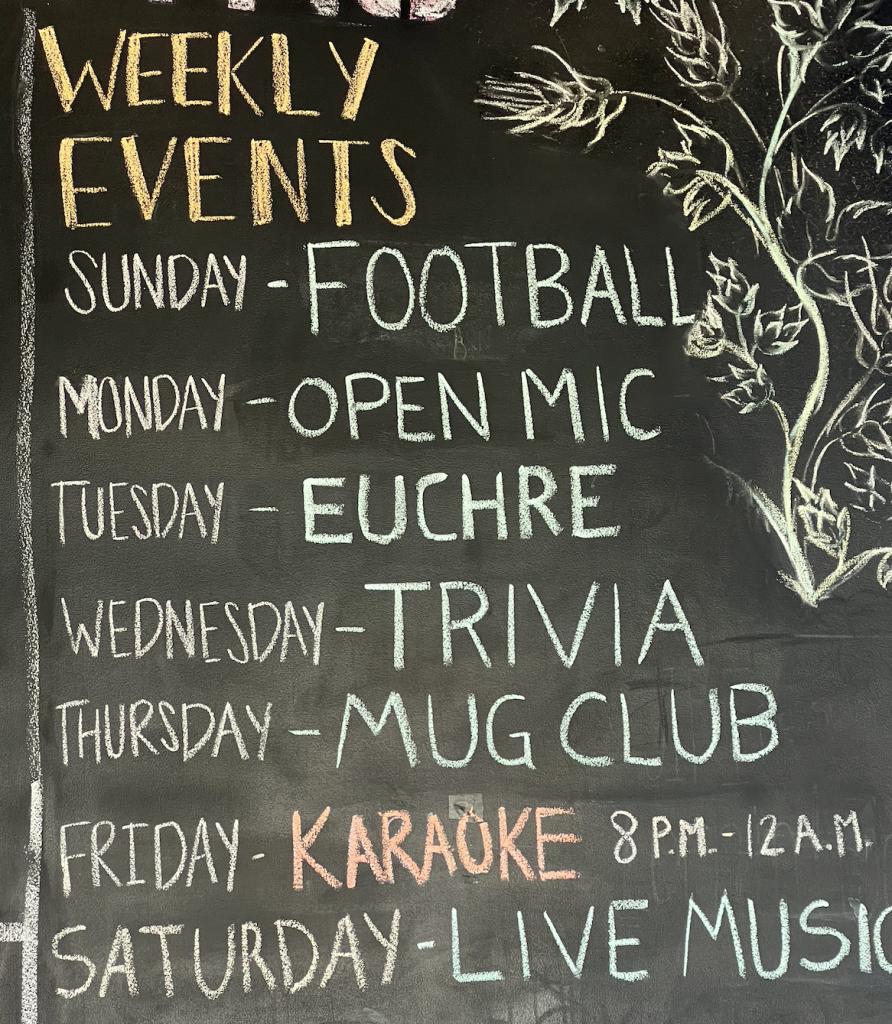 WEEKLY
EVENTS
SUNDAY - FOOTBALL
MONDAY - OPEN MIC
TUESDAY - EUCHRE
WEDNESDAY - TRIVIA
THURSDAY - MUG CLUB
FRIDAY - KARAOKE 8 P.M. - 12 A.M.
SATURDAY - LIVE MUSIC